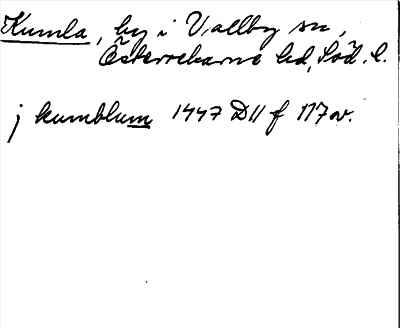 Kumla, by i Vallby sn,
Österrekarne hd, Söd. l.
j kumblum 1447 D11 f 117 v.